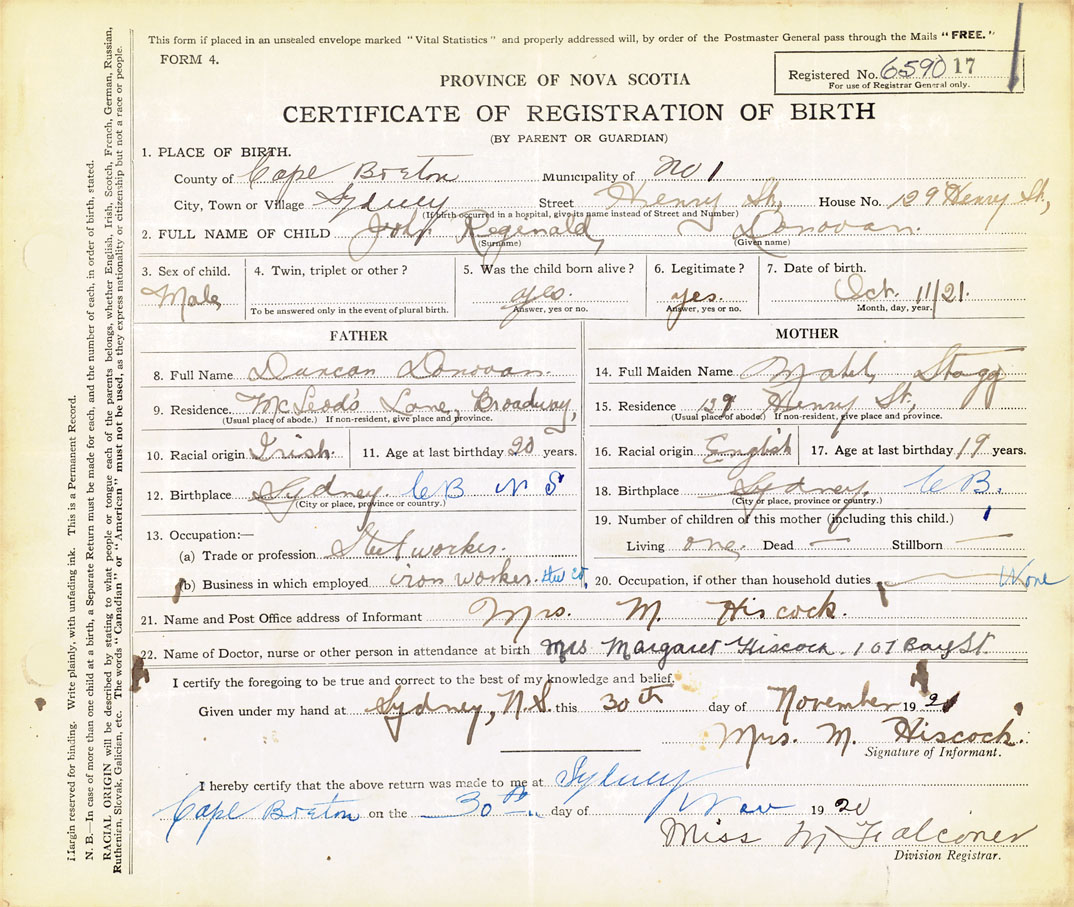 This form if placed in an unsealed envelope marked "Vital Statistics" and properly addressed will, by order of the Postmaster General pass through the Mails "FREE."
FORM 4.
Registered No. 6590 17
For use of Registrar General only.
PROVINCE OF NOVA SCOTIA
CERTIFICATE OF REGISTRATION OF BIRTH
(BY PARENT OR GUARDIAN)
1. PLACE OF BIRTH.
County of Cape Breton Municipality of No 1
City, Town or Village Sydney Street Henry St, House No. 139 Henry St,
(If birth occurred in a hospital, give its name instead of Street and Number)
2. FULL NAME OF CHILD John Reginald, Donovan.
(Surname) (Given name)
3. Sex of child. 4. Twin, triplet or other? 5. Was the child born alive? 6. Legitimate? 7. Date of birth.
Male yes. yes. Oct. 11/21.
To be answered only in the event of plural birth. Answer, yes or no. Answer, yes or no. Month, day, year.
FATHER
8. Full Name Duncan Donovan.
9. Residence McLeod's Lane, Broadway,
(Usual place of abode.) If non-resident, give place and province.
10. Racial origin Irish. 11. Age at last birthday 20 years.
12. Birthplace Sydney. C B N S
(City or place, province or country.)
13. Occupation:—
(a) Trade or profession Steel worker.
(b) Business in which employed iron worker.
MOTHER
14. Full Maiden Name Mabel Stagg
15. Residence 139 Henry St,
(Usual place of abode.) If non-resident, give place and province.
16. Racial origin English 17. Age at last birthday 19 years.
18. Birthplace Sydney. C B.
(City or place, province or country.)
19. Number of children of this mother (including this child.) 1
Living one. Dead — Stillborn —
20. Occupation, if other than household duties — None
21. Name and Post Office address of Informant Mrs. M. Hiscock.
22. Name of Doctor, nurse or other person in attendance at birth Mrs Margaret Hiscock. 107 Bay St.
I certify the foregoing to be true and correct to the best of my knowledge and belief.
Given under my hand at Sydney, N.S. this 30th day of November 1921
Mrs. M. Hiscock.
Signature of Informant.
I hereby certify that the above return was made to me at Sydney
Cape Breton on the 30th day of Nov 1920
Miss M Falconer
Division Registrar.
Margin reserved for binding. Write plainly, with unfading ink. This is a Permanent Record.
N. B.—In case of more than one child at a birth, a Separate Return must be made for each, and the number of each, in order of birth, stated.
RACIAL ORIGIN will be described by stating to what people or tongue each of the parents belongs, whether English, Irish, Scotch, French, German, Russian,
Ruthenian, Slovak, Galician, etc. The words "Canadian" or "American" must not be used, as they express nationality or citizenship but not a race or people.